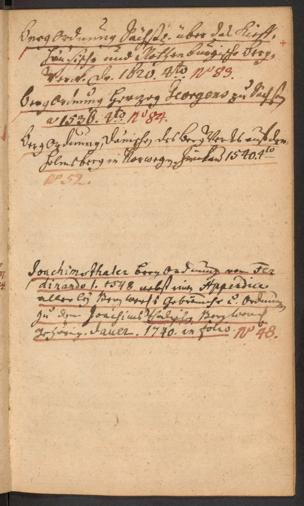 Berg Ordnung Sächß. über das Fürst.
Fränkische und Rothenburgische Berg-
Werck. Ao. 1620. 4to No 83.
Berg Ordnung Herzog Georgens zu Sachß
a 1536. 4to No 84.
Berg Ordnung, Dänische, des Berg Wercks auf dem
berg in Norwegen, 1540. 4to
No 52.
Joachimsthaler Berg Ordnung von Fer-
dinando I. 1548 nebst einer Appendice
allerley Bergwercks Gebräuche u. Ordnung
zu dem Joachimsthalisch Bergwerck
gehörig. 1720. in folio. No 48.